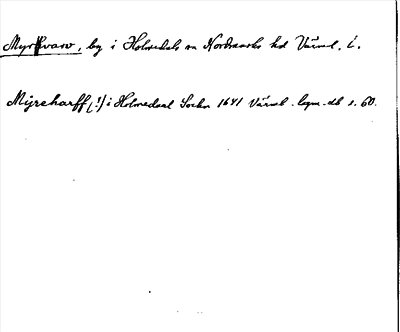 Myrhvarv, by i Holmedals sn Nordmarks hd Värml. l.
Myreharff (!) i Holmedaal Sochn 1641 Värml. lagm.-db s. 60.